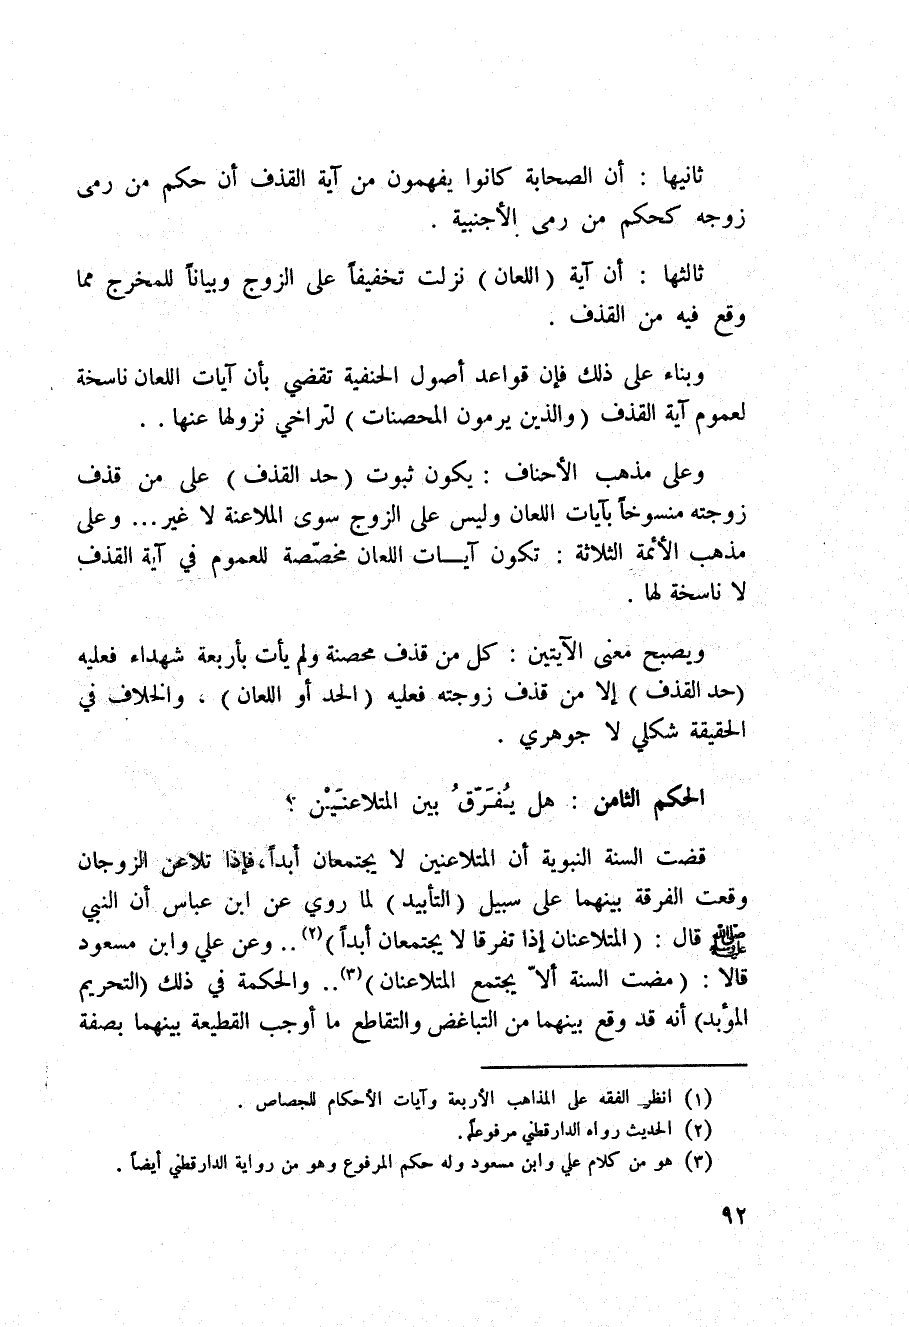 ثانيها : أن الصحابة كانوا يفهمون من آية القذف أن حكم من رمى
زوجه كحكم من رمى الأجنبية .
ثالثها : أن آية ( اللعان ) نزلت تخفيفاً على الزوج وبياناً للمخرج مما
وقع فيه من القذف .
وبناء على ذلك فإن قواعد أصول الحنفية تقضي بأن آيات اللعان ناسخة
لعموم آية القذف ( والذين يرمون المحصنات ) لتراخي نزولها عنها . .
وعلى مذهب الأحناف : يكون ثبوت ( حد القذف ) على من قذف
زوجته منسوخاً بآيات اللعان وليس على الزوج سوى الملاعنة لا غير ... وعلى
مذهب الأئمة الثلاثة : تكون آيــات اللعان مخصّصة للعموم في آية القذف
لا ناسخة لها .
ويصبح معنى الآيتين : كل من قذف محصنة ولم يأت بأربعة شهداء فعليه
(حد القذف ) إلا من قذف زوجته فعليه ( الحد أو اللعان ) . والخلاف في
الحقيقة شكلي لا جوهري .
الحكم الثامن : هل يُفَرّقُ بين المتلاعنَيْن ؟
قضت السنة النبوية أن المتلاعنين لا يجتمعان أبداً، فإذا تلاعن الزوجان
وقعت الفرقة بينهما على سبيل ( التأبيد ) لما روي عن ابن عباس أن النبي
ﷺ قال : ( المتلاعنان إذا تفرقا لا يجتمعان أبداً )(٢) .. وعن علي وابن مسعود
قالا : ( مضت السنة ألاّ يجتمع المتلاعنان )(٣) .. والحكمة في ذلك (التحريم
المؤبد) أنه قد وقع بينهما من التباغض والتقاطع ما أوجب القطيعة بينهما بصفة
(١) انظر الفقه على المذاهب الأربعة وآيات الأحكام للجصاص .
(٢) الحديث رواه الدارقطني مرفوعاً .
(٣) هو من كلام علي وابن مسعود وله حكم المرفوع وهو من رواية الدارقطني أيضاً .
٩٢